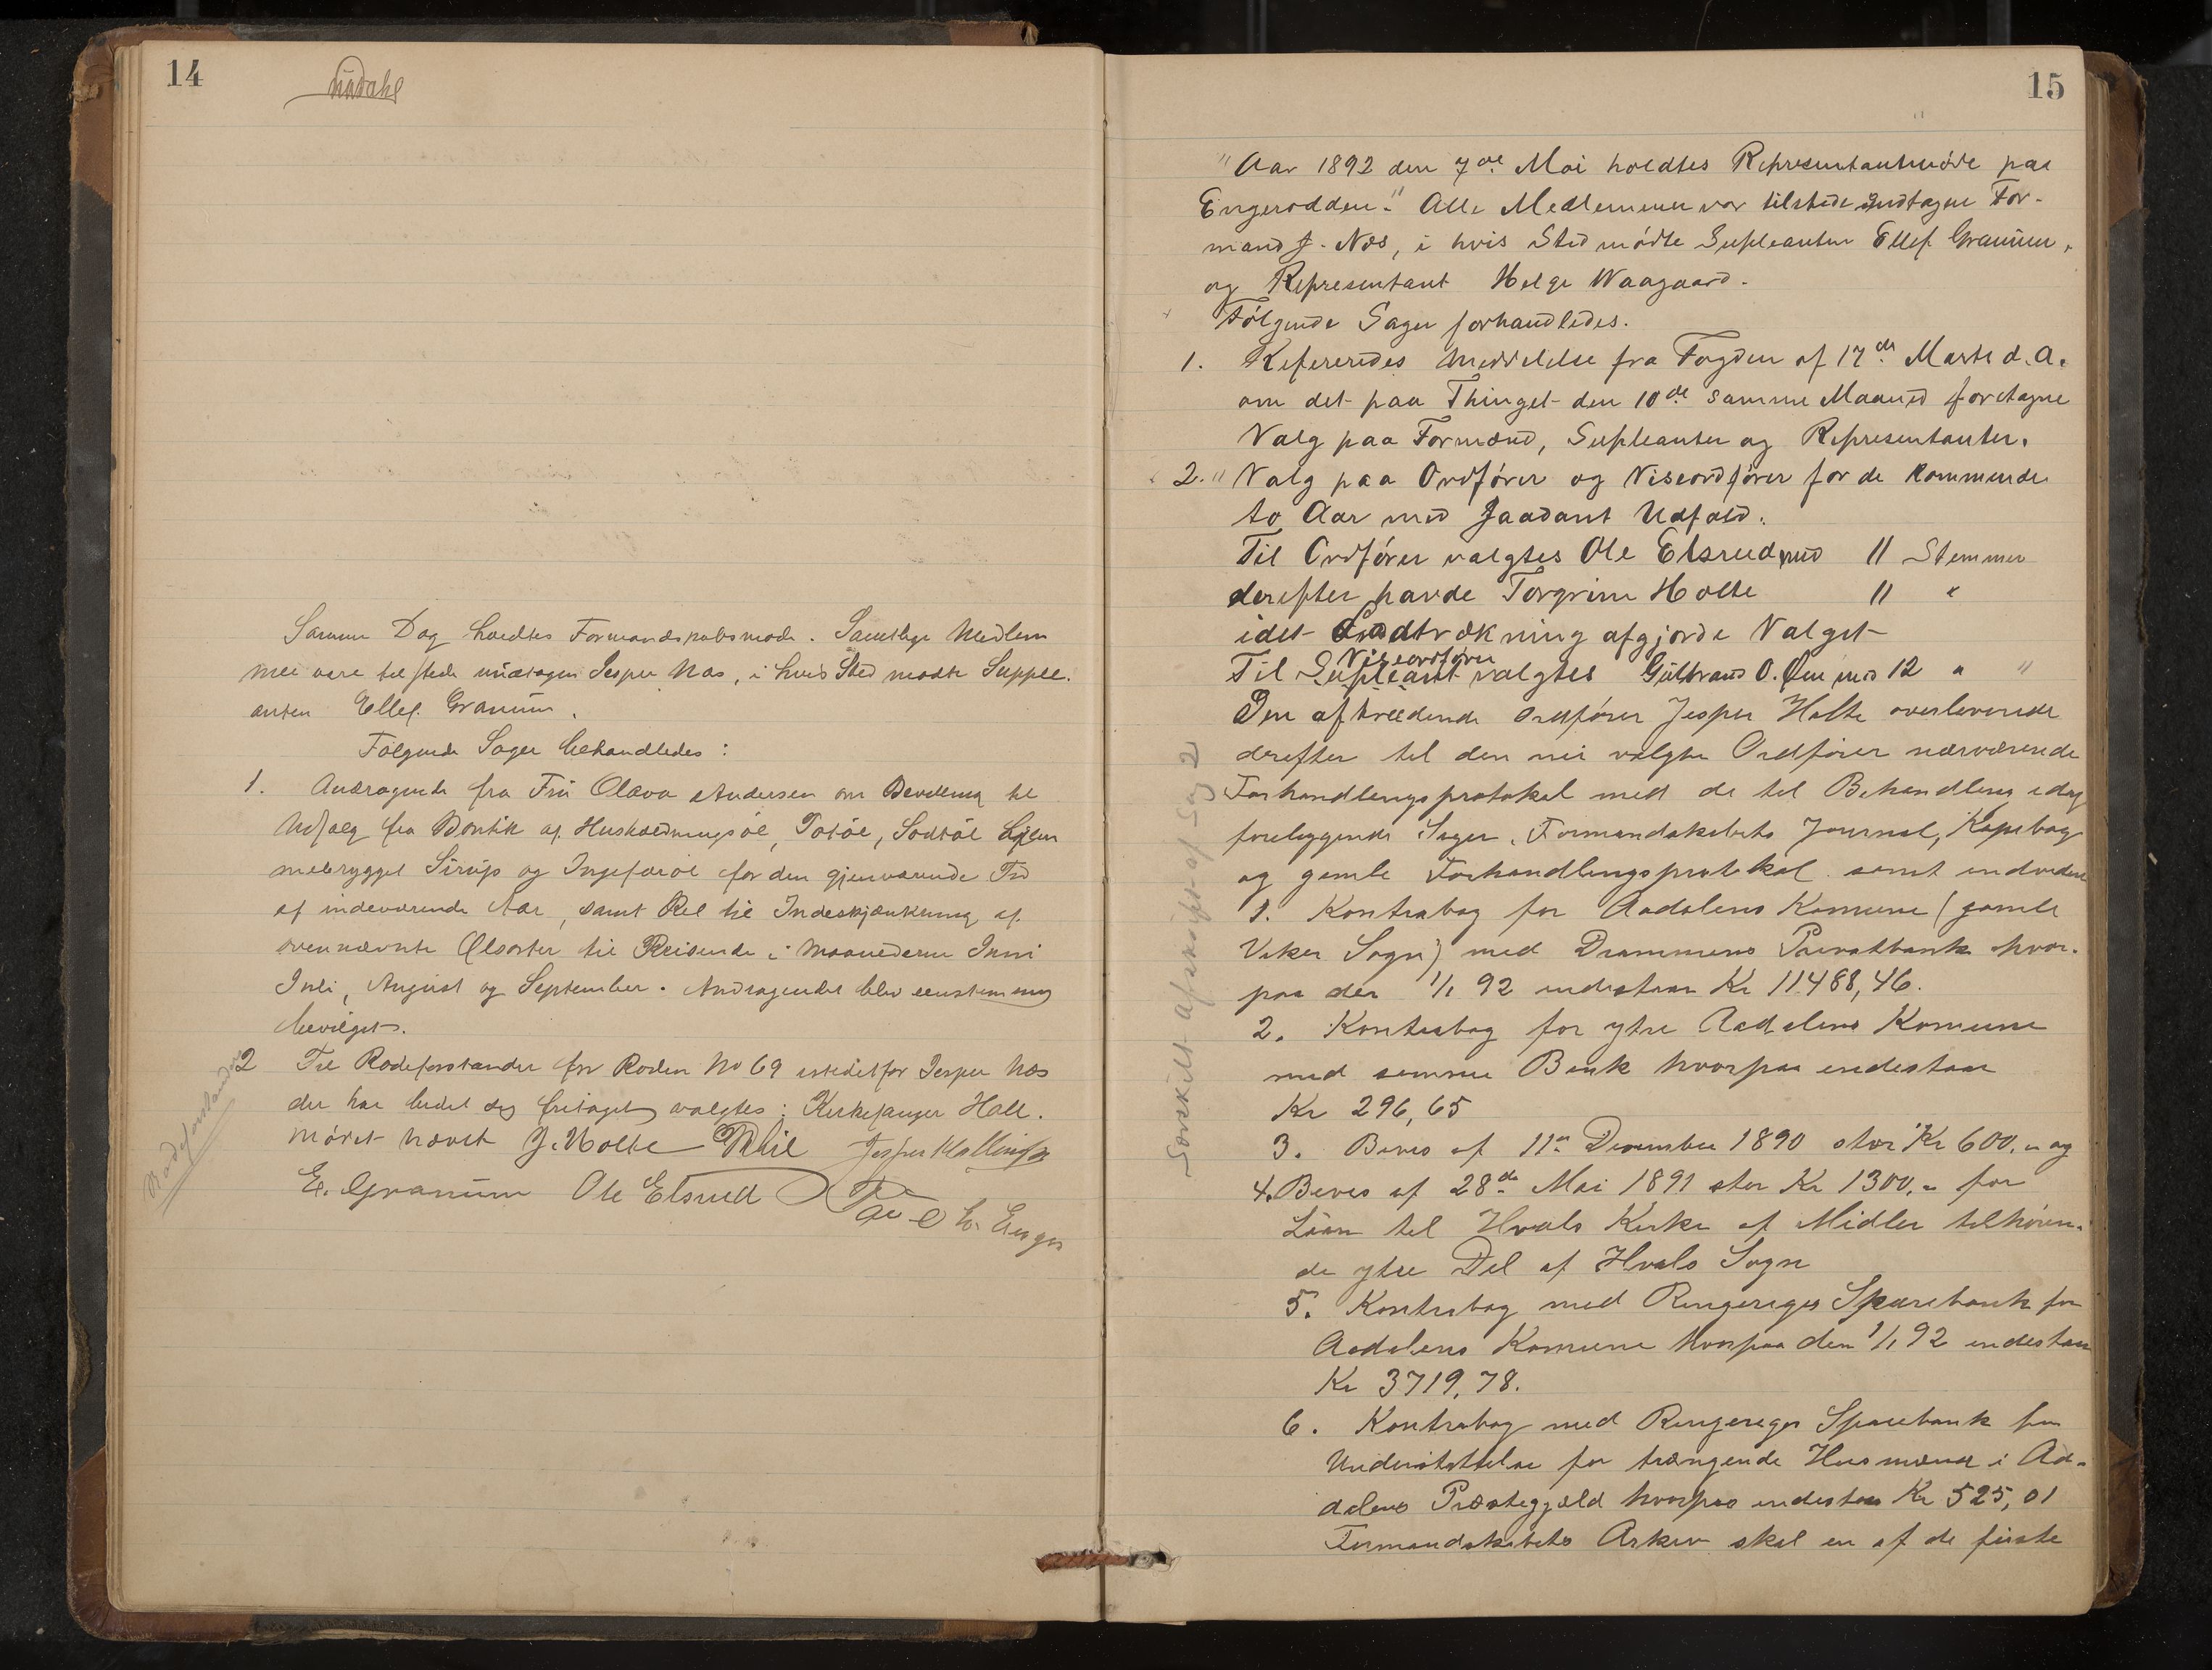 14
Samme Dag holdtes Formandskabsmøde. Samtlige Medlem
mer vare tilstede undtagen Jesper Næs, i hvis Sted mødte Supple-
anten Ellef Granum.
Følgende Sager behandledes:
1. Andragende fra Fru Olava Andersen om Bevilling til
Udsalg fra Boutik af Husholdningsøl, Potøl, Sødtøl Hjem
mebrygget Sirup og Ingeførøl for den gjenværende Tid
af indeværende Aar, samt Ret til Indeskjænkning af
ovennævnte Ølsorter til Reisende i Maanederne Juni
Juli, August og September. Andragendet blev eenstemmig
bevilget.
2 Til Rodeforstander for Roden No 69 istedetfor Jesper Næs
der har bedet sig fritaget valgtes: Kirkesanger Hall.
Mødet hævet J. Holte Jesper Kallingsø
E. Granum Ole Elsrud
Rodeforstander
15
"Aar 1892 den 7de Mai holdtes Representantmøde paa
Engerodden." Alle Medlemmer var tilstede undtagne For-
mand J. Næs, i hvis Sted mødte Supleanten Ellef Granum,
og Representant Helge Waagaard.
Følgende Sager forhandledes.
1. Refereredes Meddelelse fra Fogden af 17de Marts d. A.
om det paa Thinget den 10de samme Maaned foretagne
Valg paa Formænd, Supleanter og Representanter.
2. " Valg paa Ordfører og Viseordfører for de kommende
to Aar med saadant Udfald.
Til Ordfører valgtes Ole Elsrud med 11 Stemmer
derefter havde Torgrim Holte 11 "
idet Lodtrækning afgjorde Valget
Viseordfører
Til Supleant valgtes Gulbrand O. Øen med 12 " "
Den aftrædende Ordfører Jesper Holte overleverede
derefter til den nei valgte Ordfører nærværende
Forhandlingsprotokol med de til Behandling idag
foreliggende Sager, Formandskabets Journal, Kopibog
og gamle Forhandlingsprotokol samt endvidere
1. Kontrabog for Aadalens Komune (gamle
Viker Sogn) med Drammens Privatbank hvor-
paa der 1/1 92 indestaar Kr 11488,46.
2. Kontrabog for ytre Aadalens Komune
med samme Bank hvorpaa indestaar
Kr 296,65
3. Bevis af 11te December 1890 stor Kr 600. " og
4. Bevis af 28de Mai 1891 stor Kr 1300. " for
Laan til Hvals Kirke af Midler tilhøren-
de ytre Del af Hvals Sogn
5. Kontrabog med Ringeriges Sparebank for
Aadalens Komune hvorpaa den 1/1 92 indestaar
Kr 3719,78.
6. Kontrabog med Ringeriges Sparebank for
Understøttelse for trængende Husmænd i Aa-
dalens Præstegjæld hvorpaa indestaar Kr 525,01
Formandskabets Arkiv skal en af de første
Særskilt afskrift af Sag 2